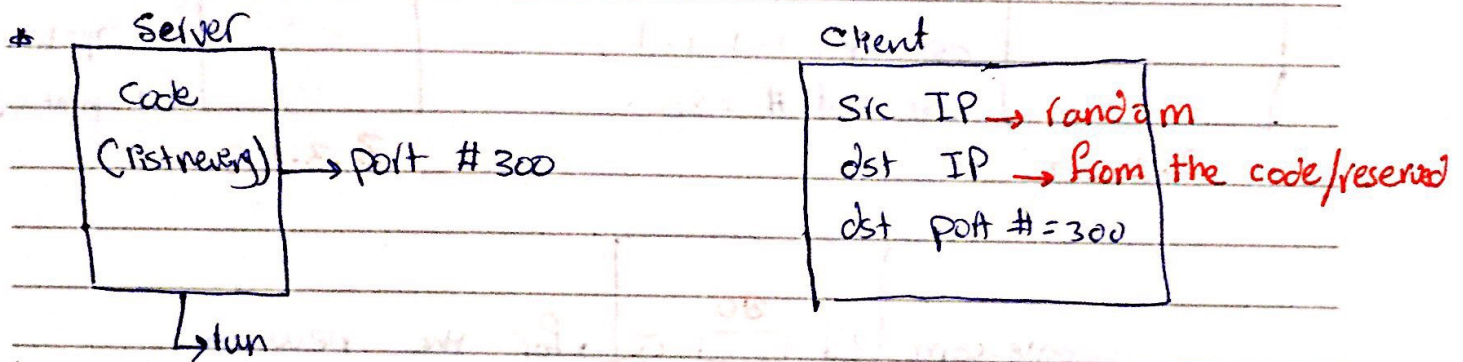 * Server
Client
Code
(listnering) → port #300
→ run
Src IP → random
dst IP → from the code/reserved
dst port #=300